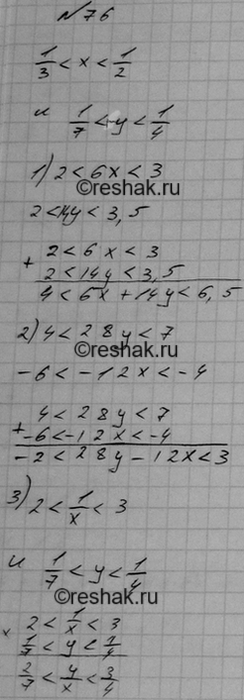 №76
1/3 < x < 1/2
и 1/7 < y < 1/4
1) 2 < 6x < 3
©reshak.ru
2 < 14y < 3,5
2 < 6x < 3
+
2 < 14y < 3,5
4 < 6x + 14y < 6,5
2) 4 < 28y < 7
©reshak.ru
-6 < -12x < -4
4 < 28y < 7
+
-6 < -12x < -4
-2 < 28y - 12x < 3
3) 2 < 1/x < 3
©reshak.ru
и 1/7 < y < 1/4
2 < 1/x < 3
×
1/7 < y < 1/4
2/7 < y/x < 3/4